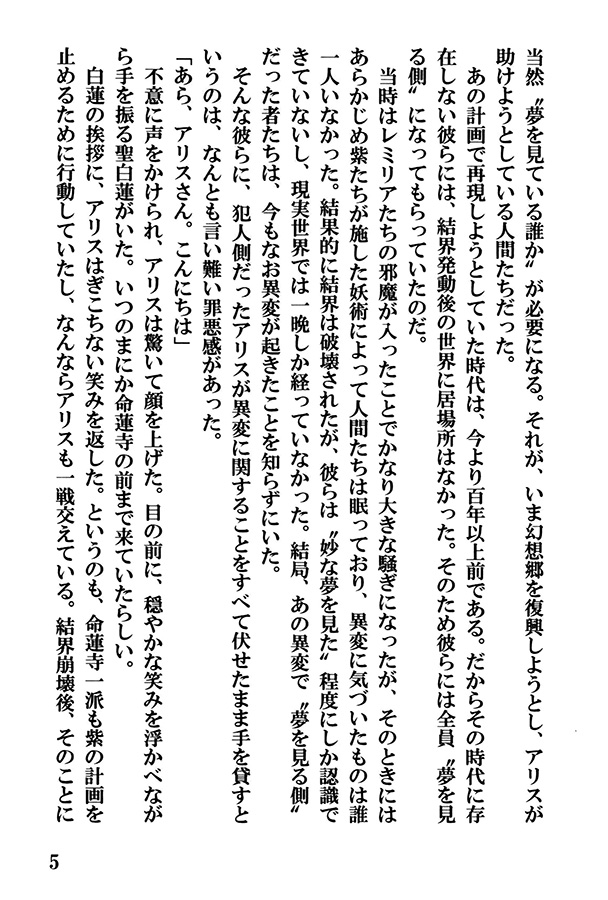 当然〝夢を見ている誰か〟が必要になる。それが、いま幻想郷を復興しようとし、アリスが
助けようとしている人間たちだった。
　あの計画で再現しようとしていた時代は、今より百年以上前である。だからその時代に存
在しない彼らには、結界発動後の世界に居場所はなかった。そのため彼らには全員〝夢を見
る側〟になってもらっていたのだ。
　当時はレミリアたちの邪魔が入ったことでかなり大きな騒ぎになったが、そのときには
あらかじめ紫たちが施した妖術によって人間たちは眠っており、異変に気づいたものは誰
一人いなかった。結果的に結界は破壊されたが、彼らは〝妙な夢を見た〟程度にしか認識で
きていないし、現実世界では一晩しか経っていなかった。結局、あの異変で〝夢を見る側〟
だった者たちは、今もなお異変が起きたことを知らずにいた。
　そんな彼らに、犯人側だったアリスが異変に関することをすべて伏せたまま手を貸すと
いうのは、なんとも言い難い罪悪感があった。
「あら、アリスさん。こんにちは」
　不意に声をかけられ、アリスは驚いて顔を上げた。目の前に、穏やかな笑みを浮かべなが
ら手を振る聖白蓮がいた。いつのまにか命蓮寺の前まで来ていたらしい。
　白蓮の挨拶に、アリスはぎこちない笑みを返した。というのも、命蓮寺一派も紫の計画を
止めるために行動していたし、なんならアリスも一戦交えている。結界崩壊後、そのことに
5